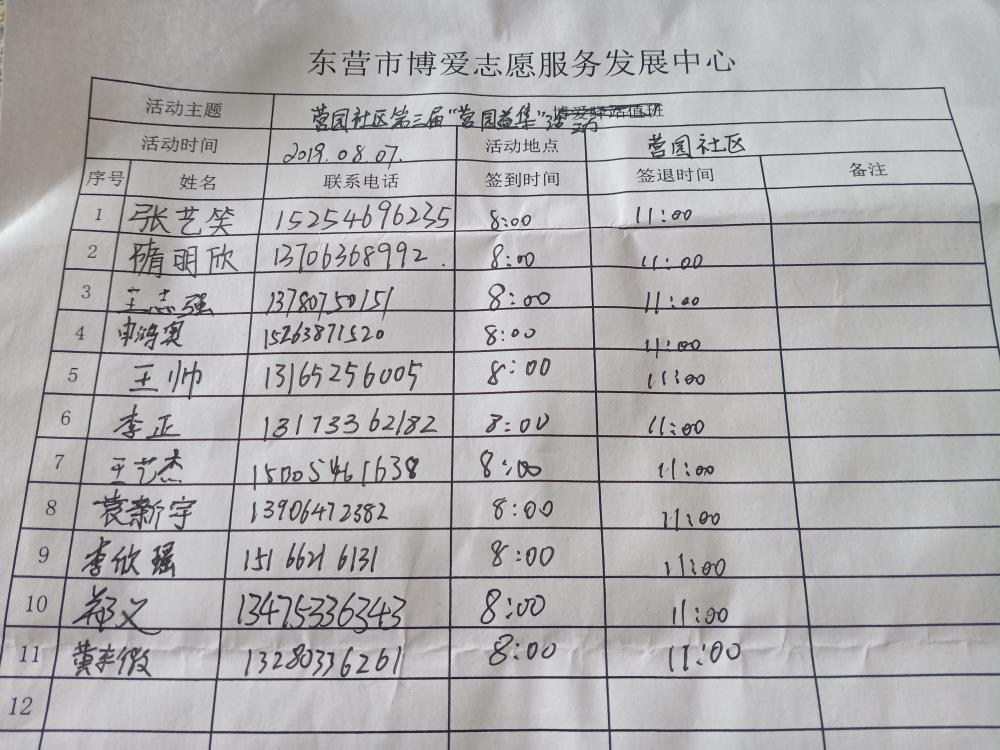 东营市博爱志愿服务发展中心
活动主题 营园社区第三届"营园益集"活动 博爱驿站值班
活动时间 2019.08.07. 活动地点 营园社区
序号 姓名 联系电话 签到时间 签退时间 备注
1 张艺笑 15254696235 8:00 11:00
2 隋明欣 13706368992. 8:00 11:00
3 王志强 13780750151 8:00 11:00
4 申鸿 15263871520 8:00 11:00
5 王帅 13165256005 8:00 11:00
6 李正 13173362182 8:00 11:00
7 王艺杰 15005461638 8:00 11:00
8 袁新宇 13906472382 8:00 11:00
9 李欣瑶 15166216131 8:00 11:00
10 郑义 13475336343 8:00 11:00
11 黄 13280336261 8:00 11:00
12